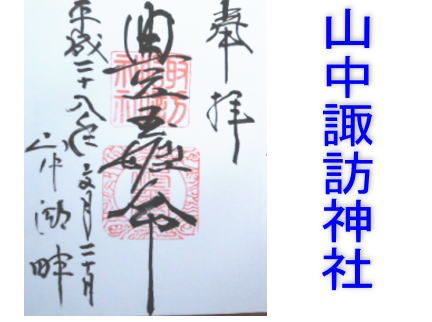 山中諏訪神社
奉拝
豊玉姫命
諏訪神社
平成二十八年文月二十日
山中湖畔